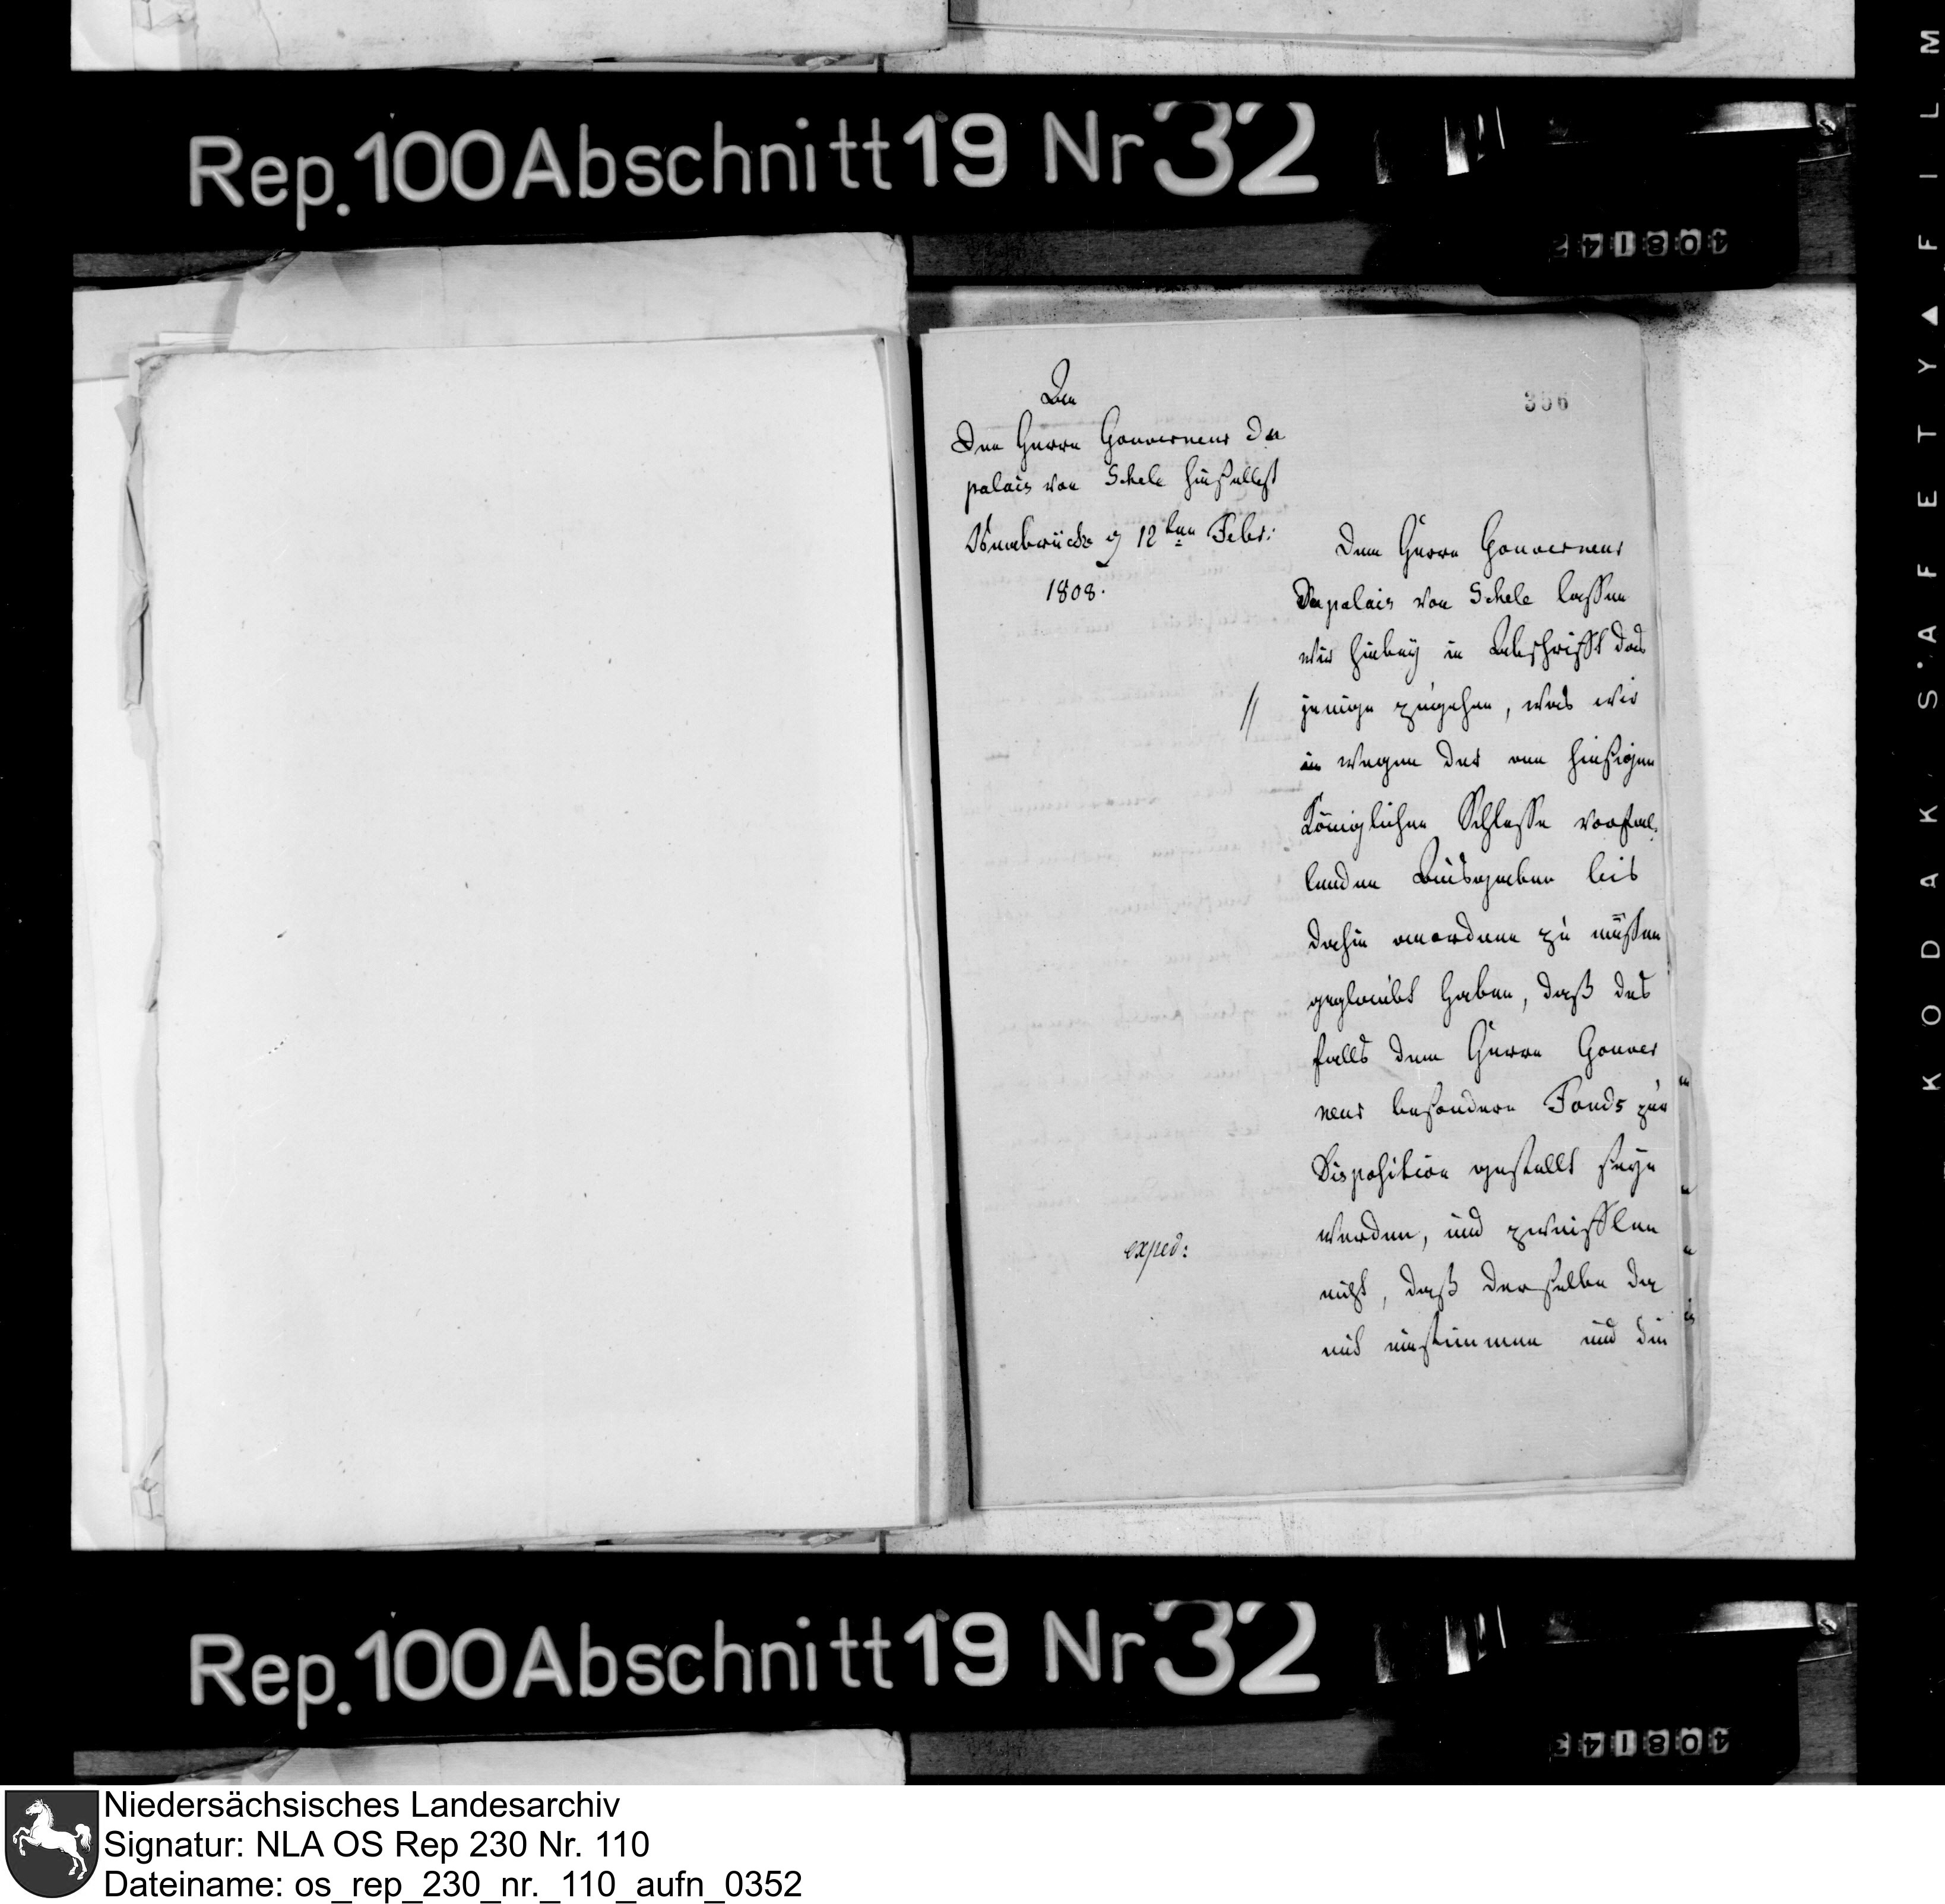 Rep. 100 Abschnitt 19 Nr 32
408142
396
An
Den Herrn Gouverneur du
palais von Schele hieselbst
Osnabrück d 12ten Febr:
1808.
Dem Herrn Gouverneur
du palais von Schele lassen
wir hiebey in Abschrifft das
jenige zugehen, was wir
in wegen der am hiesigen
Königlichen Schlosse vorfal-
lenden Ausgaben bis
dahin anordnen zu müssen
geglaubt haben, daß des
falls dem Herrn Gouver
neur besondere Fonds zur
Disposition gestellt seyn
werden, und zweifflen
nicht, daß derselbe da
mit einstimmen und die
//
exped:
Rep. 100 Abschnitt 19 Nr 32
408143
KODAK SAFETY ▲ FILM
Niedersächsisches Landesarchiv
Signatur: NLA OS Rep 230 Nr. 110
Dateiname: os_rep_230_nr._110_aufn_0352